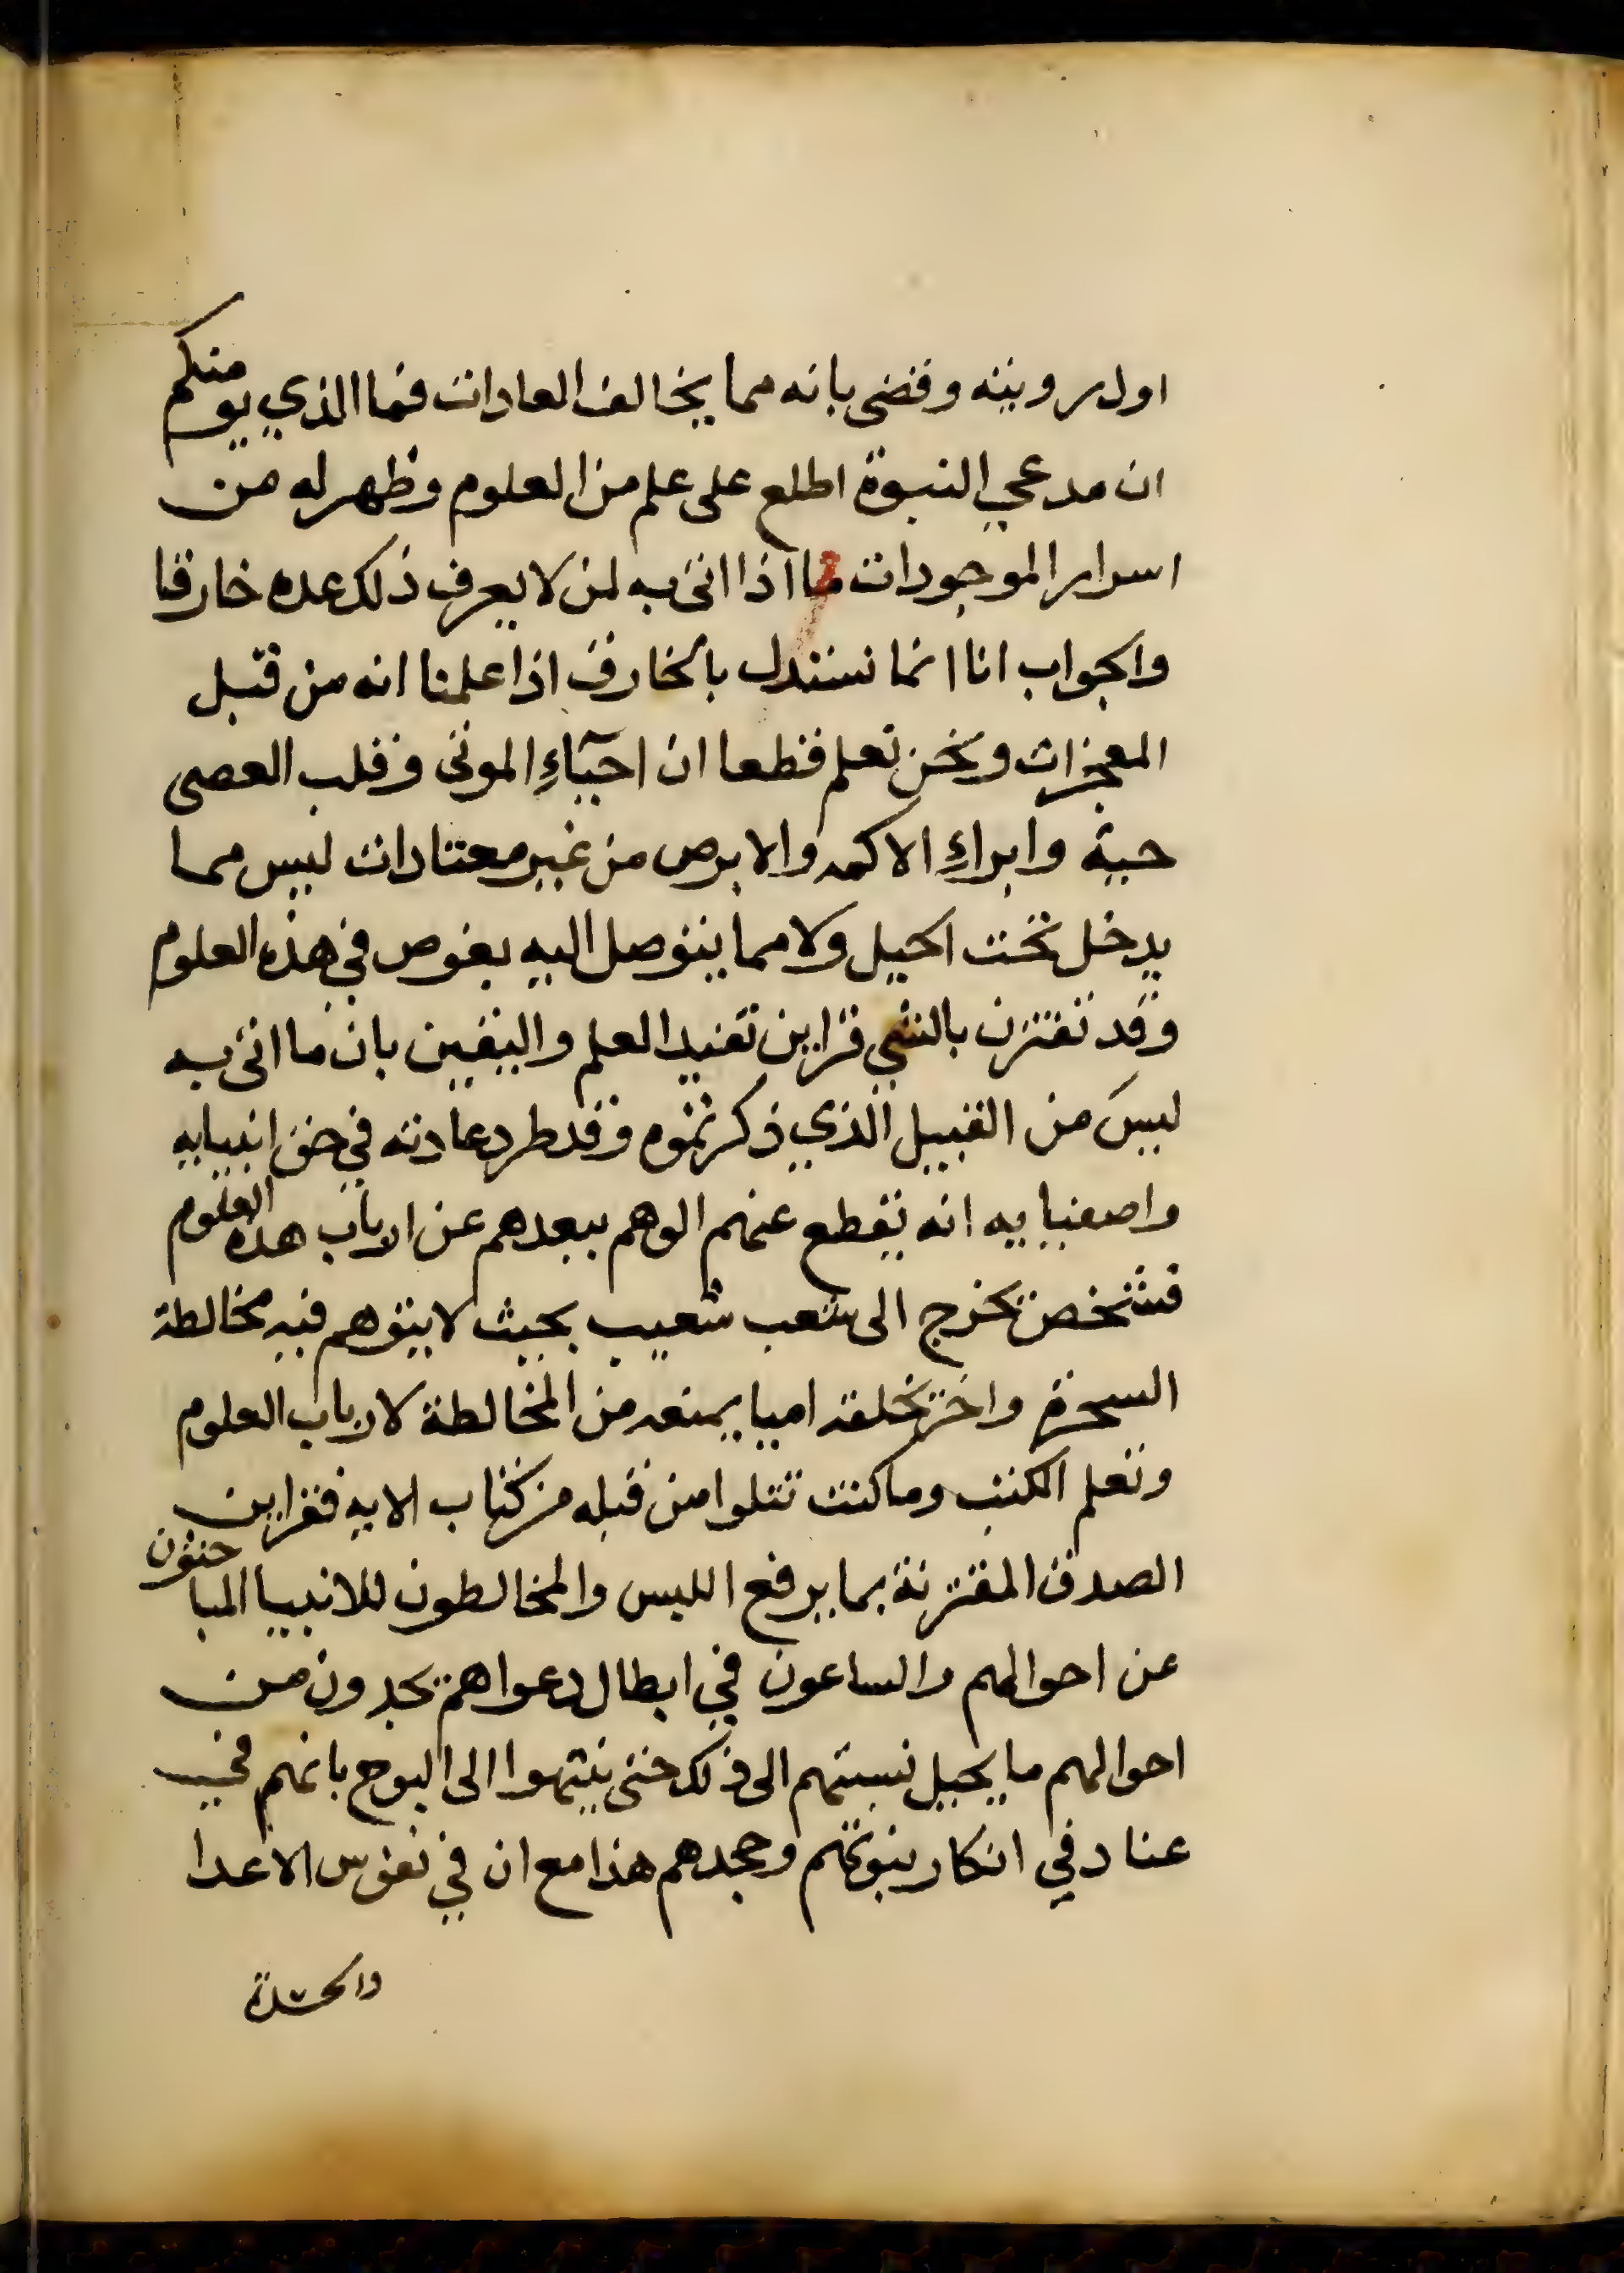 اول روينه وقضى بانه مما يخالف العادات فما الذي يومنكم
ان مدعي النبوة اطلع على علم من العلوم وظهر له من
اسرار الموجودات ما اذا اتى به لمن لا يعرف ذلك عده خارقا
والجواب انا انما نستدل بالخارق اذا علمنا انه من قبل
المعجزات ونحن نعلم قطعا ان احيآءِ الموتى وقلب العصى
حية وابراءِ الاكمه والابرص من غير معتادات ليس مما
يدخل تحت الحيل ولا مما يتوصل اليه بغوص في هذه العلوم
وقد تقترن بالشي قراين تفيد العلم واليقين بان ما اتى به
ليسَ من القبيل الذي ذكرتموه وقد طرد عادته في حق انبيايه
واصفيايه انه يقطع عنهم الوهم ببعدهم عن ارباب هذه العلوم
فشخص يخرج الى شعب شعيب بحيث لا يتوهم فيه مخالطة
السحرة واخر يخلقه اميا يمنعه من المخالطة لارباب العلوم
وتعلم الكتب وما كنت تتلوا من قبله من كتاب الايه فقراين
الصدق المقترنة بما يرفع اللبس والمخالطون للانبيا المباحثون
عن احوالهم والساعون في ابطال دعواهم يجدون من
احوالهم ما يحيل نسبتهم الى ذلك حتى ينتهوا الى البوح بانهم في
عناد في انكار نبوتهم وجحدهم هذا مع ان في نفوس الاعدا
والحسدة